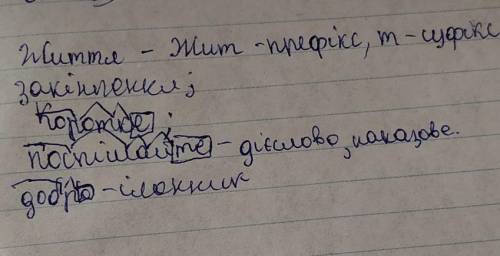 Життя - жит - префікс, т - суфікс
закінчення;
Коротке;
поспішайте - дієслово, наказове.
добро - іменник